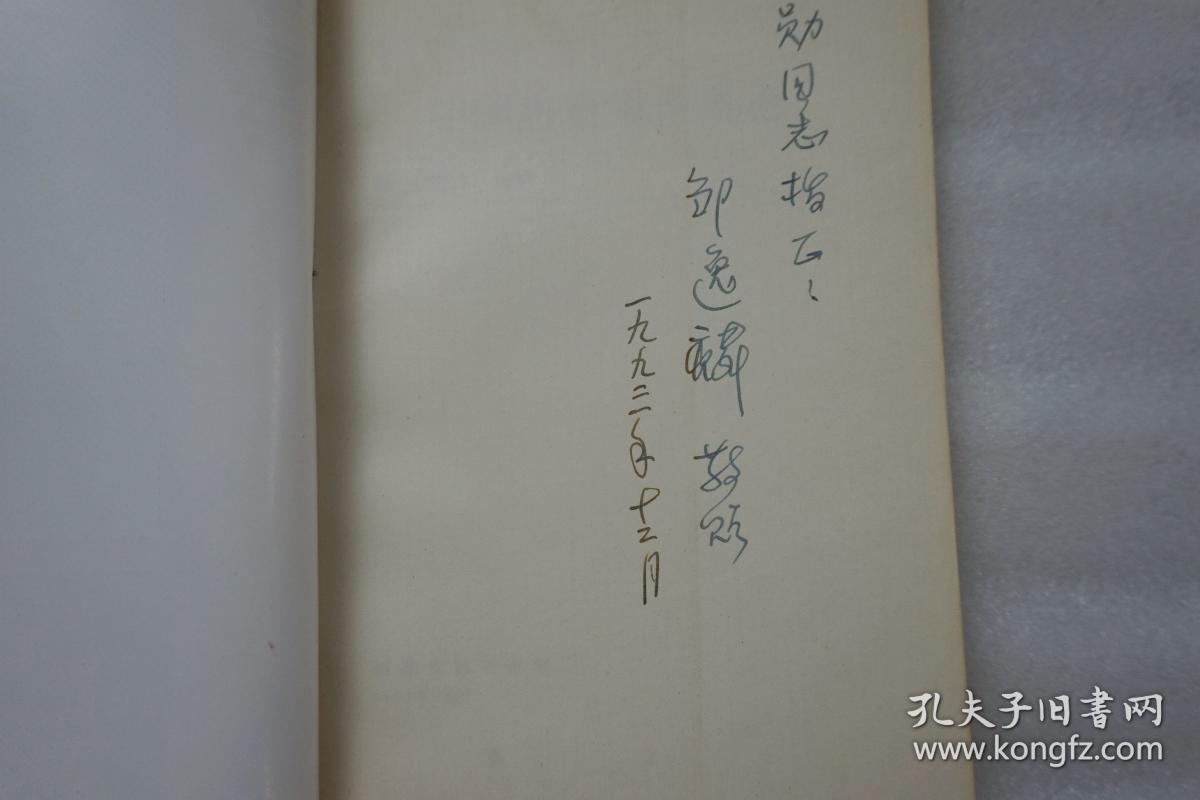 勋同志指正：
邹逸麟 敬
一九九三年十二月
孔夫子旧書网
www.kongfz.com